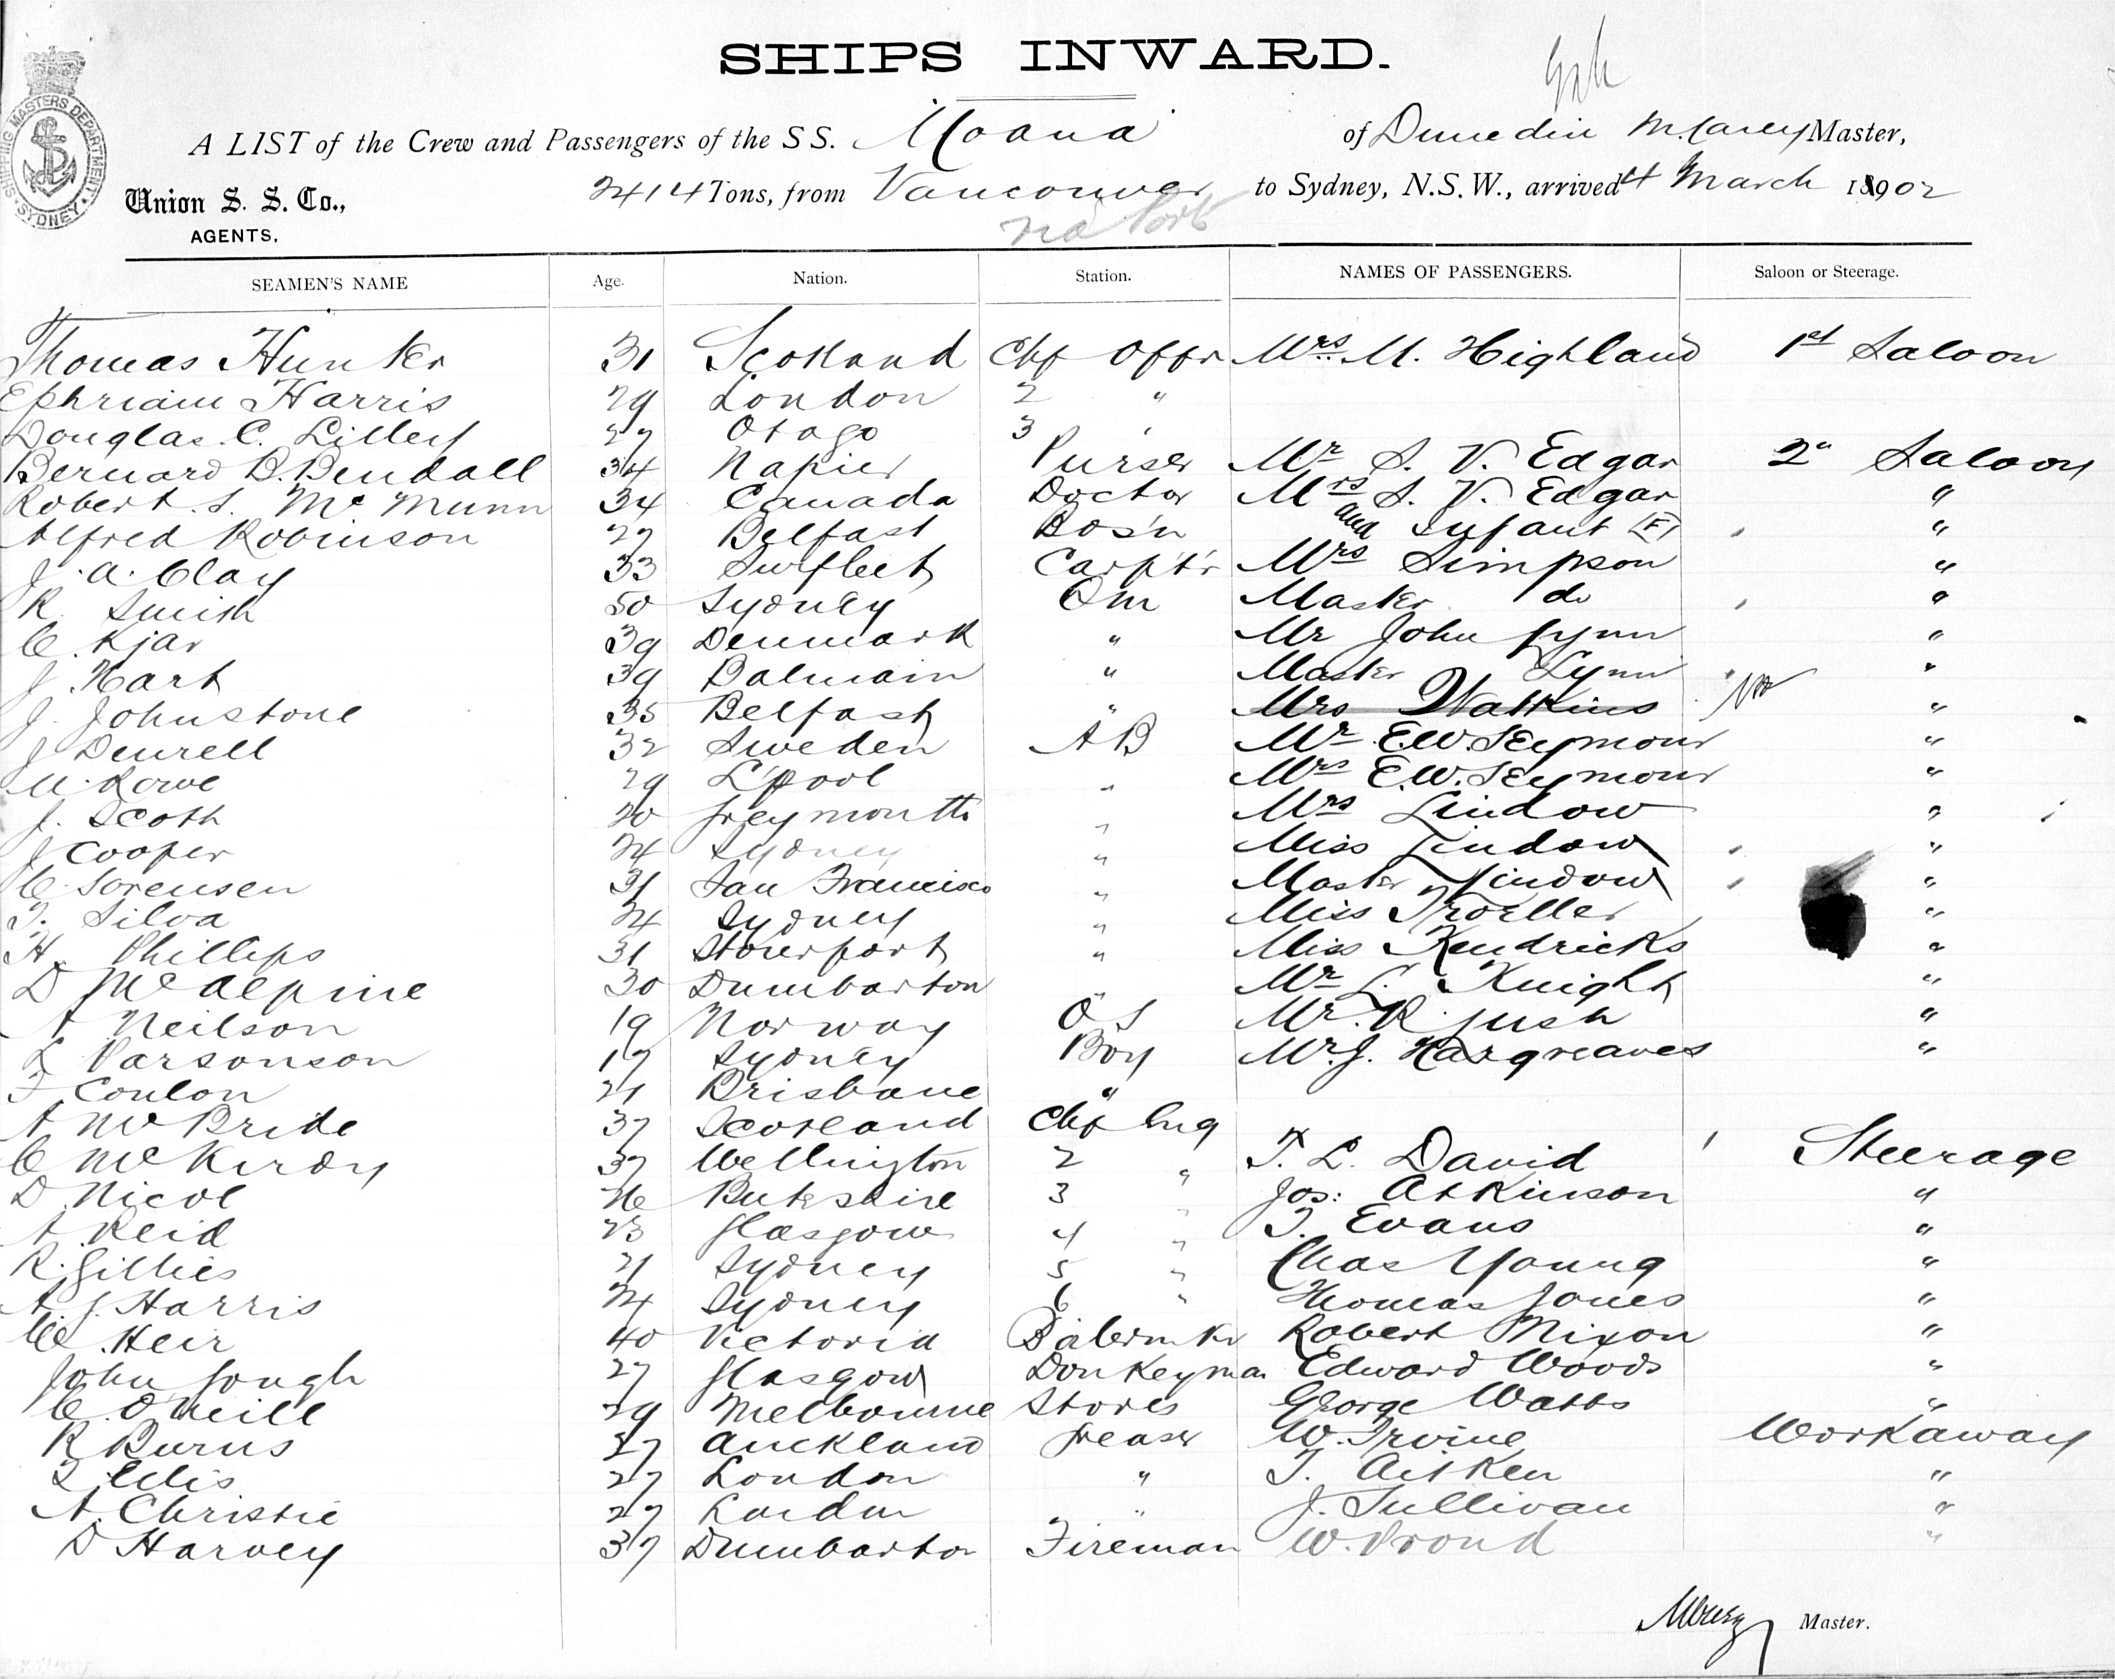 SHIPS INWARD.
SHIPPING MASTERS DEPARTMENT SYDNEY
A LIST of the Crew and Passengers of the S S. Moana of Dunedin M. Carey Master,
Union S. S. Co., AGENTS.
2414 Tons, from Vancouver to Sydney, N.S.W., arrived March 1902
via Ports
SEAMEN'S NAME Age. Nation. Station. NAMES OF PASSENGERS. Saloon or Steerage.
Thomas Hunter 31 Scotland Chf Offr Mrs. M. Highland 1st Saloon
Ephriaim Harris 29 London 2 "
Douglas. C. Lilley 27 Otago 3 "
Bernard B. Bendall 34 Napier Purser Mr S. V. Edgar 2" Saloon
Robert. S. Mc Munn 34 Canada Doctor Mrs S. V. Edgar "
Alfred Robinson 27 Belfast Bos'n and Infant (F) "
J. A. Clay 33 Swefleet Carpt'r Mrs Simpson "
R Smith 50 Sydney Qm Master do "
C. Kjar 39 Denmark " Mr John Lynn "
J Hart 39 Balmain " Master Lynn "
J. Johnstone 35 Belfast " Mrs Watkins "
J Deurell 32 Sweden A B Mr E.W. Seymour "
W. Rowe 29 L'pool " Mrs E.W. Seymour "
J. Scott 20 Greymouth " Mrs Lindow "
J Cooper 24 Sydney " Miss Lindow "
C. Sorensen 31 San Francisco " Master Lindow "
T. Silva 24 Sydney " Miss Troeller "
H. Phillips 31 Stourport " Miss Kendricks "
D McAlpine 30 Dumbarton " Mr L. Knight "
A Neilson 19 Norway O S Mr. R. Lush "
L Parsonson 17 Sydney Boy Mr. J. Hargreaves "
F Conlon 21 Brisbane "
A McBride 37 Scotland Chf Eng
C McKirdy 37 Wellington 2 " T. L. David Steerage
D Nicol 26 Buteshire 3 " Jos: Atkinson "
A Reid 23 Glasgow 4 " T. Evans "
R. Gillies 21 Sydney 5 " Chas Young "
A. J. Harris 24 Sydney 6 " Thomas Jones "
C. Heir 40 Victoria Robert Nixon "
John Gough 27 Glasgow Donkeyman Edward Woods "
C. O'Neill 29 Melbourne Stores George Watts "
R Burns 27 Auckland Greaser W. Irvine Workaway
L Ellis 27 London " T. Aitken "
A. Christie 27 London " J. Sullivan "
D Harvey 37 Dumbarton Fireman W. Proud "
MCarey Master.